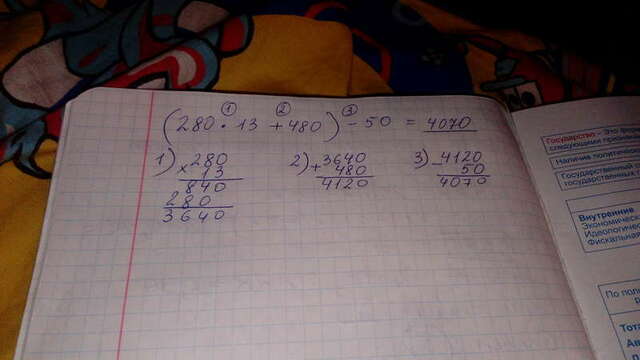 ① ② ③
(280 · 13 + 480) - 50 = 4070
1) × 280
13
840
280
3640
2) + 3640
480
4120
3) - 4120
50
4070
Государство – Это
Наличие
Государственный
государственных
Внутренние
Экономическ
Идеологиче
Фискальная
По
Тота